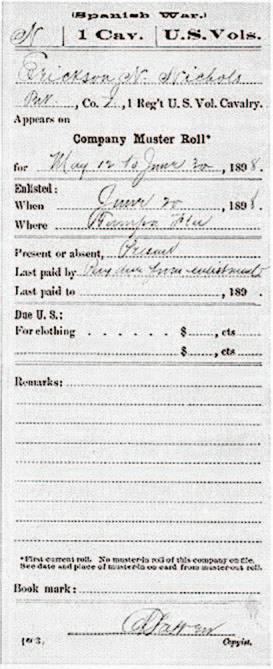 (Spanish War.)
N | 1 Cav. | U.S. Vols.
Erickson N. Nichols
Pvt., Co. I, 1 Reg't U. S. Vol. Cavalry.
Appears on
Company Muster Roll*
for May 12 to June 30, 1898.
Enlisted:
When June 20, 1898.
Where Tampa Fla
Present or absent, Present
Last paid by Pay due from enlistment
Last paid to , 189
Due U. S.:
For clothing . . . . . . $ , cts
$ , cts
Remarks:
*First current roll. No muster-in roll of this company on file.
See date and place of muster-in on card from muster-out roll.
Book mark:
Copyist.